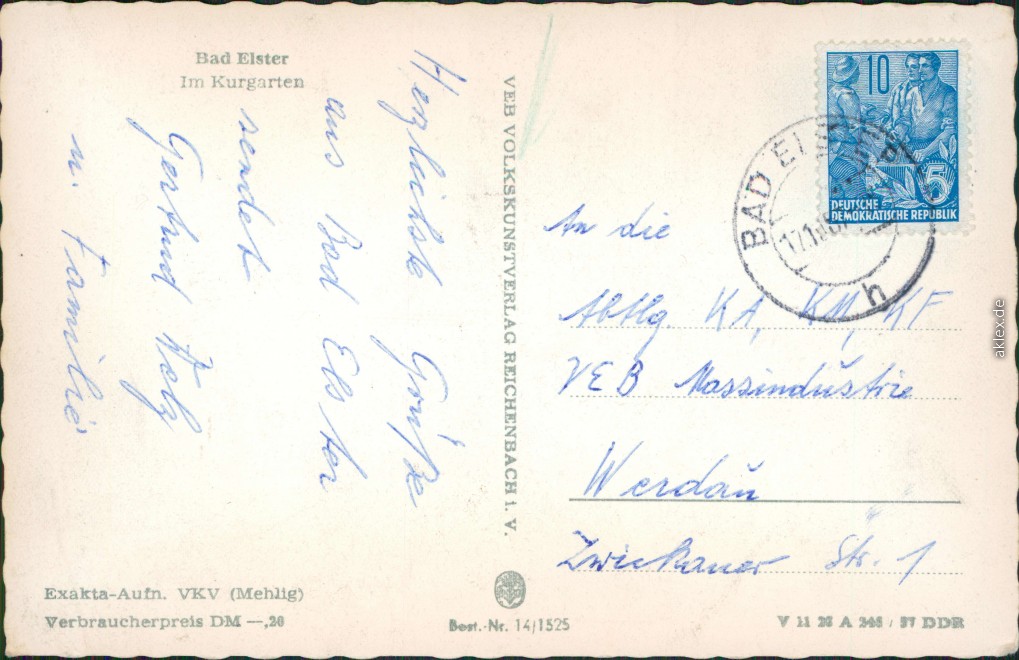 Bad Elster
Im Kurgarten
Herzlichste Grüße
aus Bad Elster
sendet
Gertrud
u. Familie
VEB VOLKSKUNSTVERLAG REICHENBACH i. V.
10
5
DEUTSCHE
DEMOKRATISCHE REPUBLIK
BAD
h
An die
Abtlg. KA, KM, KF
VEB Massindustrie
Werdau
Zwickauer Str. 1
Exakta-Aufn. VKV (Mehlig)
Verbraucherpreis DM —,20
Best.-Nr. 14/1525
V 11 28 A / 57 DDR
aklex.de